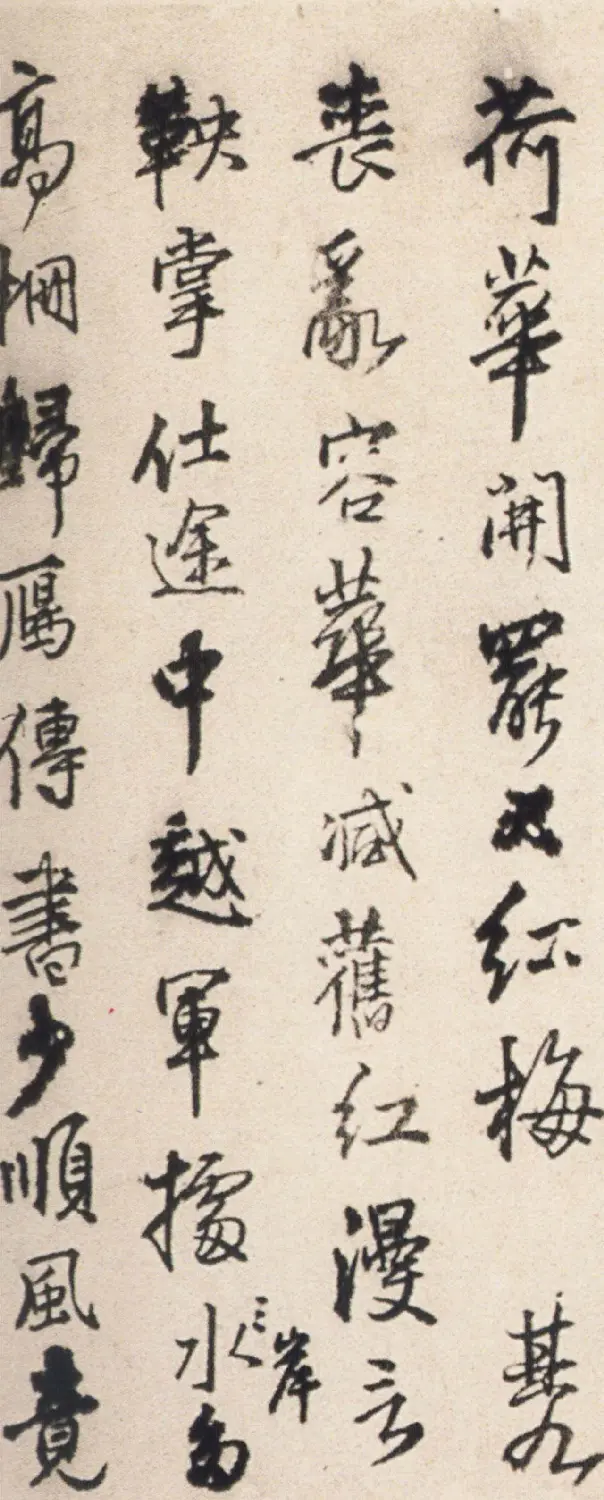 荷華開罷又紅梅 其九
喪亂容華減舊紅漫言
鞅掌仕途中越軍據水多三岸
高歸鴈傳書少順風竟